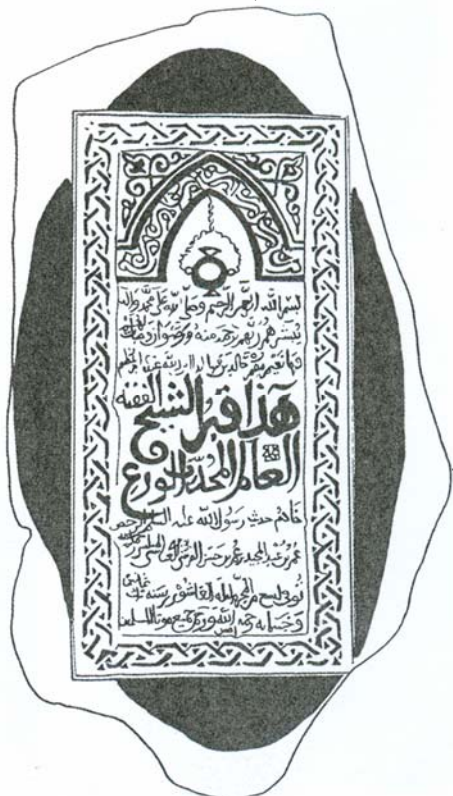 بسم الله الرحمن الرحيم وصلى الله على محمد واله
يبشرهم ربهم برحمة منه ورضوان وجنات لهم
فيها نعيم مقيم خالدين فيها ابدا ان الله عنده اجر عظيم
هذا قبر الشيخ الفقيه
العالم المحدث الورع
خادم حديث رسول الله عليه السلم ابى حفص
عمر بن عبد المجيد بن عمر بن حسن القرشى
توفى لتسع من المحرم ليلة العاشور سنة ثمانين
وخمسمايه رحمه الله ورحم جميع موتا المسلمين امين